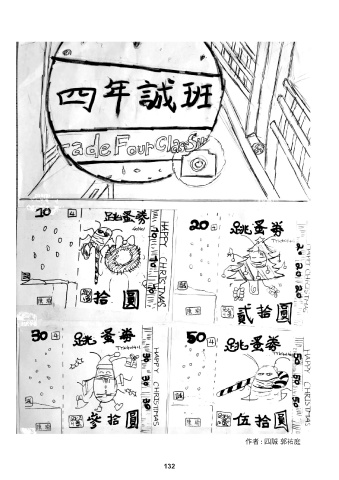 四年誠班
rade Four Class
10 四
跳蚤券
HAPPY CHRISTMAS
拾圓
20
跳蚤券
20 20 20
HAPPY CHRISTMAS
貳拾圓
30 四
跳蚤券
30 30 30
HAPPY CHRISTMAS
參拾圓
50 四
跳蚤券
50 50 50
HAPPY CHRISTMAS
伍拾圓
作者：四誠 郭祐庭
132